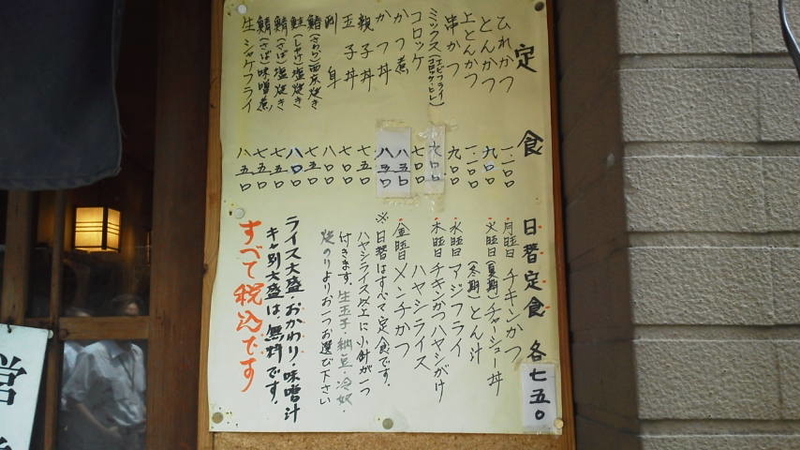 定食
ひれかつ 一、一〇〇
とんかつ 九〇〇
上とんかつ 一、一〇〇
串かつ 九〇〇
ミックス(エビフライ コロッケ・ヒレ) 九〇〇
コロッケ 七〇〇
かつ煮 八五〇
かつ丼 八五〇
親子丼 七五〇
玉子丼 七〇〇
刺身 八〇〇
鰆(さわら)西京焼き 七五〇
鮭(しゃけ)塩焼き 八〇〇
鯖(さば)塩焼き 七五〇
鯖(さば)味噌煮 七五〇
生シャケフライ 八五〇
日替定食 各七五〇
月曜日 チキンかつ
火曜日(夏期)チャーシュー丼
(冬期)とん汁
水曜日 アジフライ
木曜日 チキンかつハヤシがけ
ハヤシライス
金曜日 メンチかつ
※日替はすべて定食です。
ハヤシライス以上に小鉢が一つ
付きます。生玉子・納豆・冷奴・
焼のりよりお一つお選び下さい
ライス大盛・おかわり・味噌汁
キャ別大盛は無料です。
すべて税込です
営